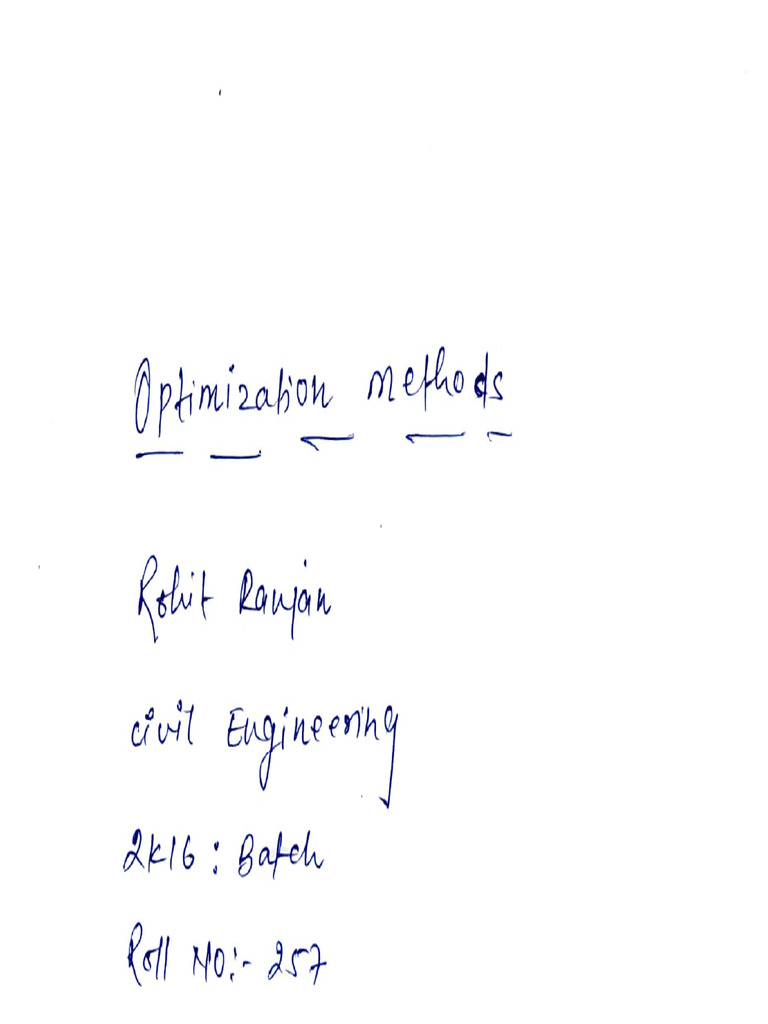 Optimization methods
Rohit Ranjan
civil Engineering
2K16 : Batch
Roll NO:- 257